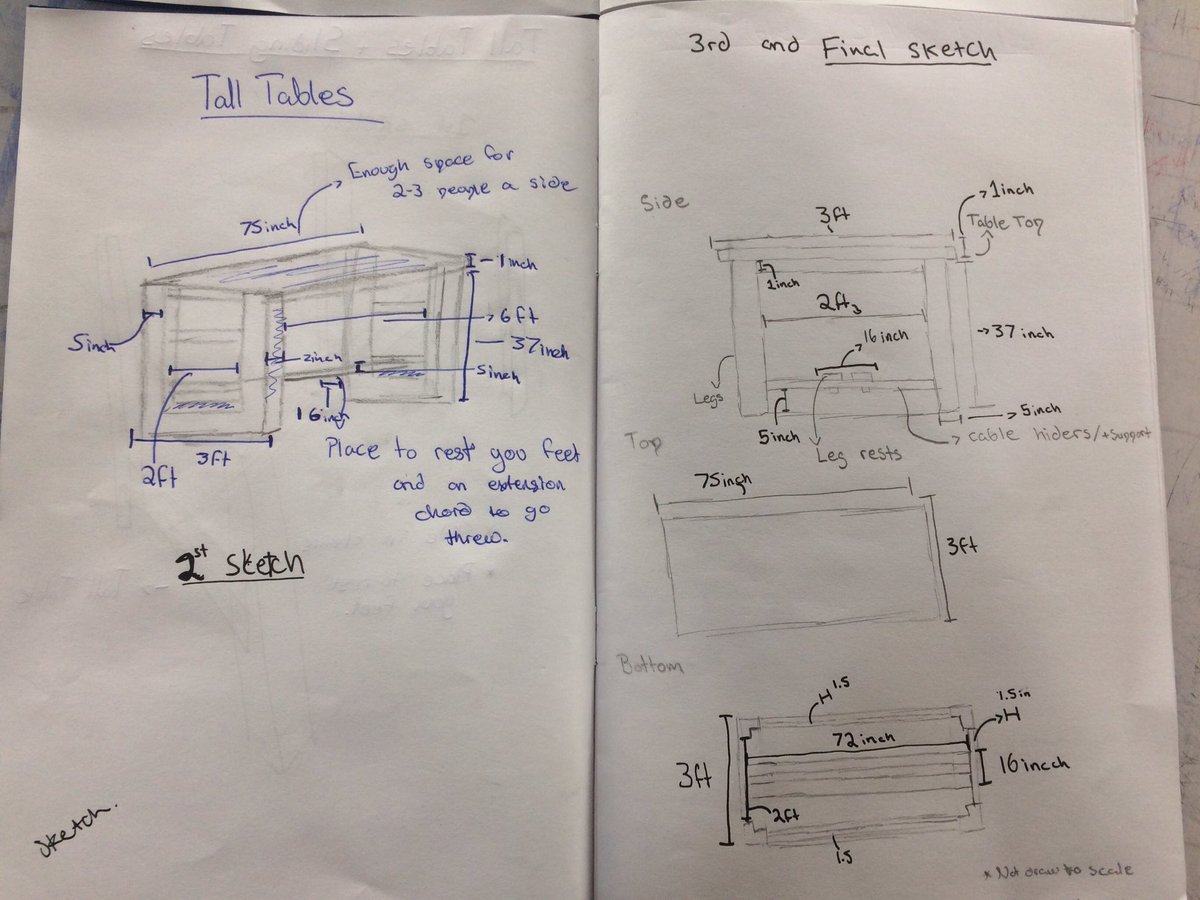 Tall Tables
Enough space for
2-3 people a side
75inch
1inch
6ft
37inch
5inch
5inch
2inch
16inch
3ft
2ft
Place to rest you feet
and an extension
chord to go
threw.
2st Sketch
Sketch.
3rd and Final Sketch
Side
3ft
1inch
Table Top
1inch
2ft
16inch
37 inch
Legs
5inch
5inch
cable hiders/+support
Leg rests
Top
75inch
3ft
Bottom
1.5
1.5in
72inch
3ft
16incch
2ft
1.5
* Not draw to scale